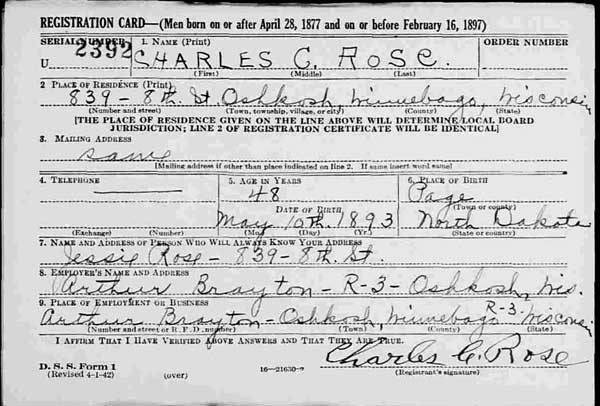 REGISTRATION CARD—(Men born on or after April 28, 1877 and on or before February 16, 1897)
SERIAL NUMBER 1. NAME (Print) ORDER NUMBER
U 2392 CHARLES C. ROSE.
(First) (Middle) (Last)
2 PLACE OF RESIDENCE (Print)
839 - 8th. St. Oshkosh, Winnebago, Wisconsin
(Number and street) (Town, township, village, or city) (County) (State)
[THE PLACE OF RESIDENCE GIVEN ON THE LINE ABOVE WILL DETERMINE LOCAL BOARD
JURISDICTION; LINE 2 OF REGISTRATION CERTIFICATE WILL BE IDENTICAL]
3. MAILING ADDRESS
same
[Mailing address if other than place indicated on line 2. If same insert word same]
4. TELEPHONE 5. AGE IN YEARS 6. PLACE OF BIRTH
48 Page
DATE OF BIRTH (Town or county)
May 10th. 1893 North Dakota
(Exchange) (Number) (Mo.) (Day) (Yr.) (State or country)
7. NAME AND ADDRESS OF PERSON WHO WILL ALWAYS KNOW YOUR ADDRESS
Jessie Rose - 839 - 8th. St.
8. EMPLOYER'S NAME AND ADDRESS
Arthur Brayton - R-3 - Oshkosh, Wis.
9. PLACE OF EMPLOYMENT OR BUSINESS
Arthur Brayton - Oshkosh, Winnebago R-3- Wisconsin
(Number and street or R. F. D. number) (Town) (County) (State)
I AFFIRM THAT I HAVE VERIFIED ABOVE ANSWERS AND THAT THEY ARE TRUE.
Charles C. Rose
D. S. S. Form 1
(Revised 4-1-42) (over) 16—21630-2 (Registrant's signature)